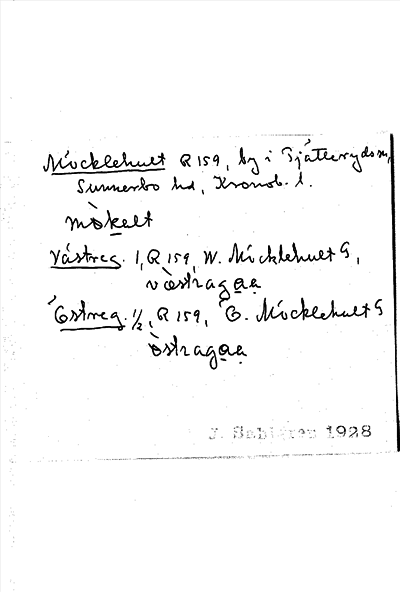 Mocklehult R 159, by i Tjäteryds sn,
Sunnerbo hd, Kronob. l.
mòkelt
Västreg. 1, R 159, W. Mocklehult G,
vàstragaa
Östreg. 1/2, R 159, Ö. Mocklehult G
òstragaa
J. Sahlgren 1928